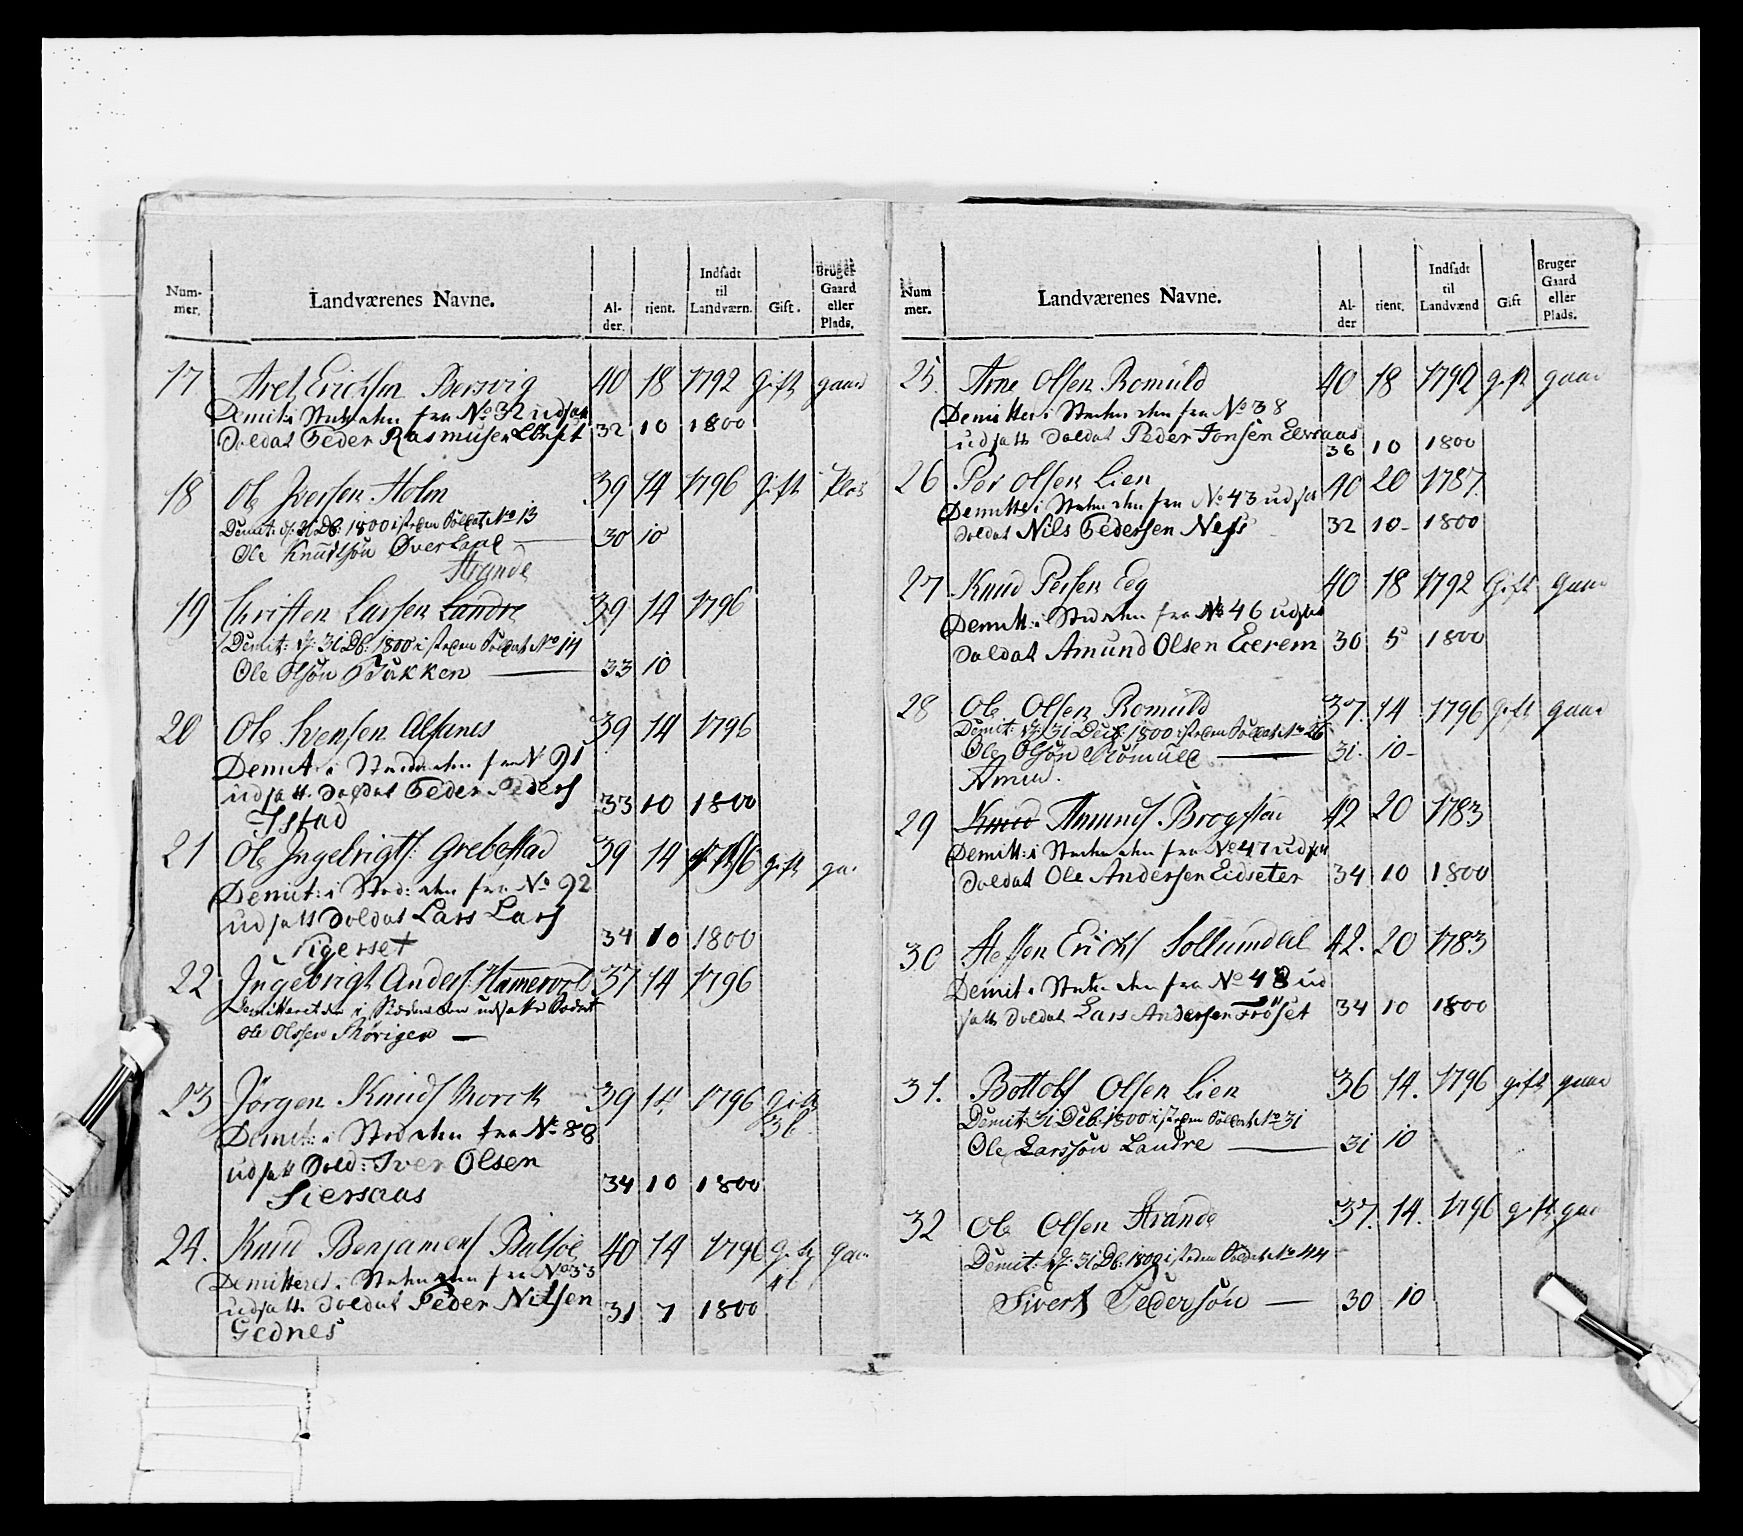 Num-
mer.
Landværenes Navne.
Al-
der.
tient.
Indsadt
til
Landværn.
Gift.
Bruger
Gaard
eller
Plads.
17 Arel Erichsen Bersvig 40 18 1792 Gift gaar
Demit i Steden fra No 32 udsat
Soldat Peder Rasmusen 32 10 1800
18 Ole Iversen Holm 39 14 1796 Gift
Demit: 31 Db: 1800 i steden Soldat No 13
Ole Knudsøn Øverland 30 10
Strande
19 Christen Larsen Landre 39 14 1796
Demit: 31 Db: 1800 i steden Soldat No 14
Ole Olsøn Bakken 33 10
20 Ole Svensen Alsanes 39 14 1796
Demit i fra N 91
udsatt Soldat Peder Peders 33 10 1800
Istad
21 Ole Ingebrigts: Grebestad 39 14 1796 gift
Demit: i Sted: den fra No 92
udsatt Soldat Lars Lars
Sigerset 34 10 1800
22 Ingebrigt Anders: Hamervold 37 14 1796
Demitteret den i Steden den udsatte Soldat
Ole Olssen
23 Jørgen Knuds Morck 39 14 1796 Gift
36
Demit: i Sted den fra No 88
udsatt Sold: Iver Olsen
Siersaas 34 10 1800
24. Knud Benjamens Bulsøe 40 14 1796 Gift gaar
Demitteret i fra No 33
udsatt Soldat Peder Nilsen 31 7 1800
Gednes
Num
mer.
Landværenes Navne.
Al-
der
tient.
Indsadt
til
Landværnd
Gift
Bruger
Gaard
eller
Plads.
25. Arne Olsen Romuld 40 18 1792 gift gaar
Demitter i fra No 38
udsatt Soldat Peder Jonsen
36 10 1800
26 Per Olsen Lien 40 20 1787
Demitte i fra No 43 udsat
Soldat Nils Pedersen Ness 32 10 - 1800
27 Knud Persen Eeg 40 18 1792 Gift gaar
Demitt: i Sted den fra No 46 udsat
Soldat Amund Olsen Eerem 30 5 1800
28 Ole Olsen Romuld 37. 14 1796 gift gaar
Demit: 31 Decb: 1800 i steden Soldat No 26
Ole Olsøn Romuld 31. 10 -
Amun.
29 Knud Amunds. Brogstad 42 20 1783
Demitt: i fra No 47 udsat
Soldat Ole Andersen Eidseter 34 10 1800
30 Steffen Erichs Sollumdal 42. 20 1783
Demit i fra No 48 ud
satt Soldat Lars Andersen Frøset 34 10 1800
31. Bottolf Olsen Lien 36 14. 1796 gift gaar
Demit: 31 Decb: 1800 i steden Soldat No 31
Ole Larssøn Landre 31 10
32 Ole Olsen Strande 37. 14. 1796 gift gaar
Demit: 31 Db: 1800 i steden Soldat No 44
Sivert Pedersøn 30 10